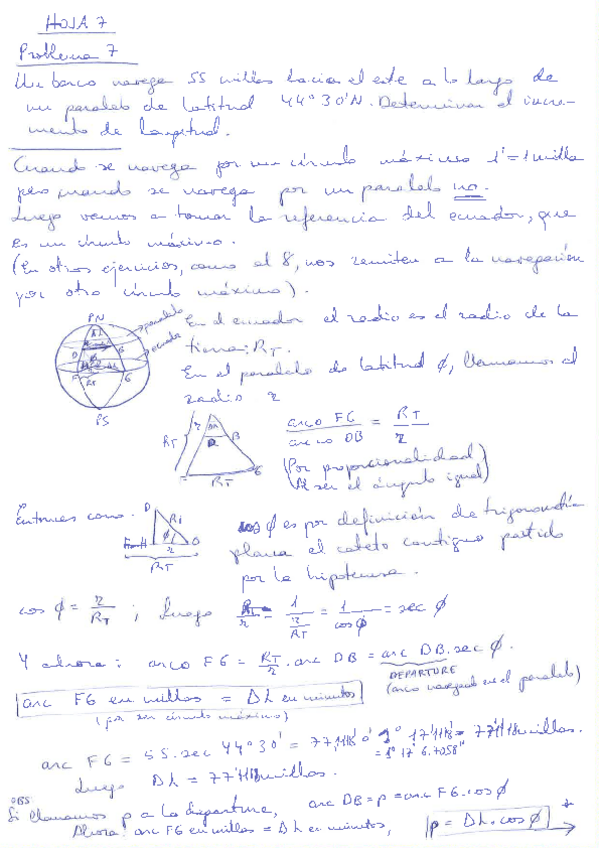 HOJA 7
Problema 7
Un barco navega 55 millas hacia el este a lo largo de
un paralelo de latitud 44°30'N. Determinar el incre-
mento de longitud.
Cuando se navega por un círculo máximo 1'=1 milla
pero cuando se navega por un paralelo no.
Luego vamos a tomar la referencia del ecuador, que
es un círculo máximo.
(En otros ejercicios, como el 8, nos remiten a la navegación
por otro círculo máximo).
PN
paralelo
PS
En el ecuador el radio es el radio de la
tierra: RT.
En el paralelo de latitud ϕ, llamamos al
radio r
RT
r
B
RT
G
arco FG / arco DB = RT / r
(Por proporcionalidad)
(Al ser el ángulo igual)
Entonces como.
D
RT
ϕ
r
O
RT
cos ϕ es por definición de trigonometría
plana el cateto contiguo partido
por la hipotenusa.
cos ϕ = r/RT ; luego RT/r = 1/(r/RT) = 1/cos ϕ = sec ϕ
Y ahora: arco FG = RT/r . arc DB = arc DB . sec ϕ.
DEPARTURE
(arco navegado en el paralelo)
arc FG en millas = ΔL en minutos
(por ser círculo máximo)
arc FG = 55. sec 44°30' = 77,118' ó 1° 17'118 = 77'118 millas.
= 1° 17' 6.7058"
Luego ΔL = 77'118 millas.
OBS:
Si llamamos p a la departure, arc DB = p = arc FG . cos ϕ
Ahora: arc FG en millas = ΔL en minutos, p = ΔL . cos ϕ